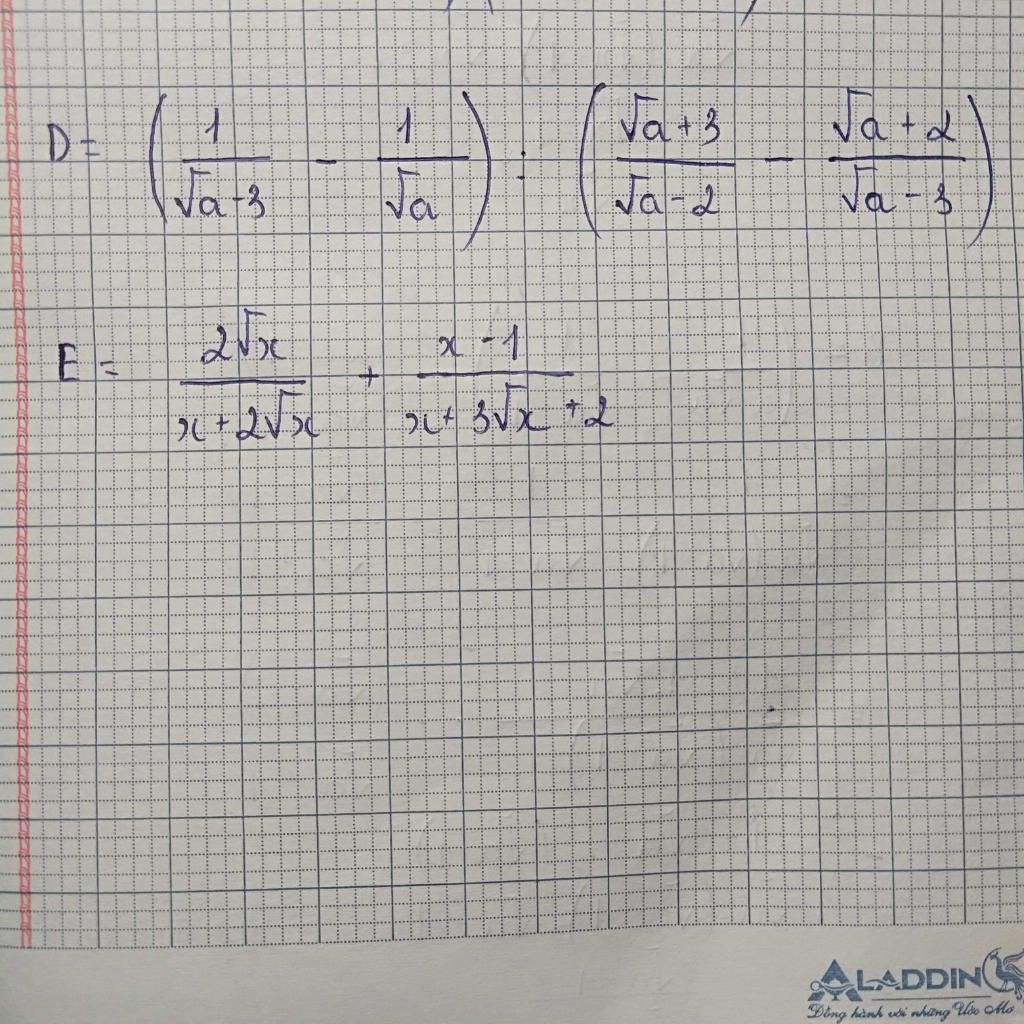 D = (1/(√a - 3) - 1/√a) : ((√a + 3)/(√a - 2) - (√a + 2)/(√a - 3))
E = 2√x/(x + 2√x) + (x - 1)/(x + 3√x + 2)
ALADDIN
Đồng hành với những Ước Mơ